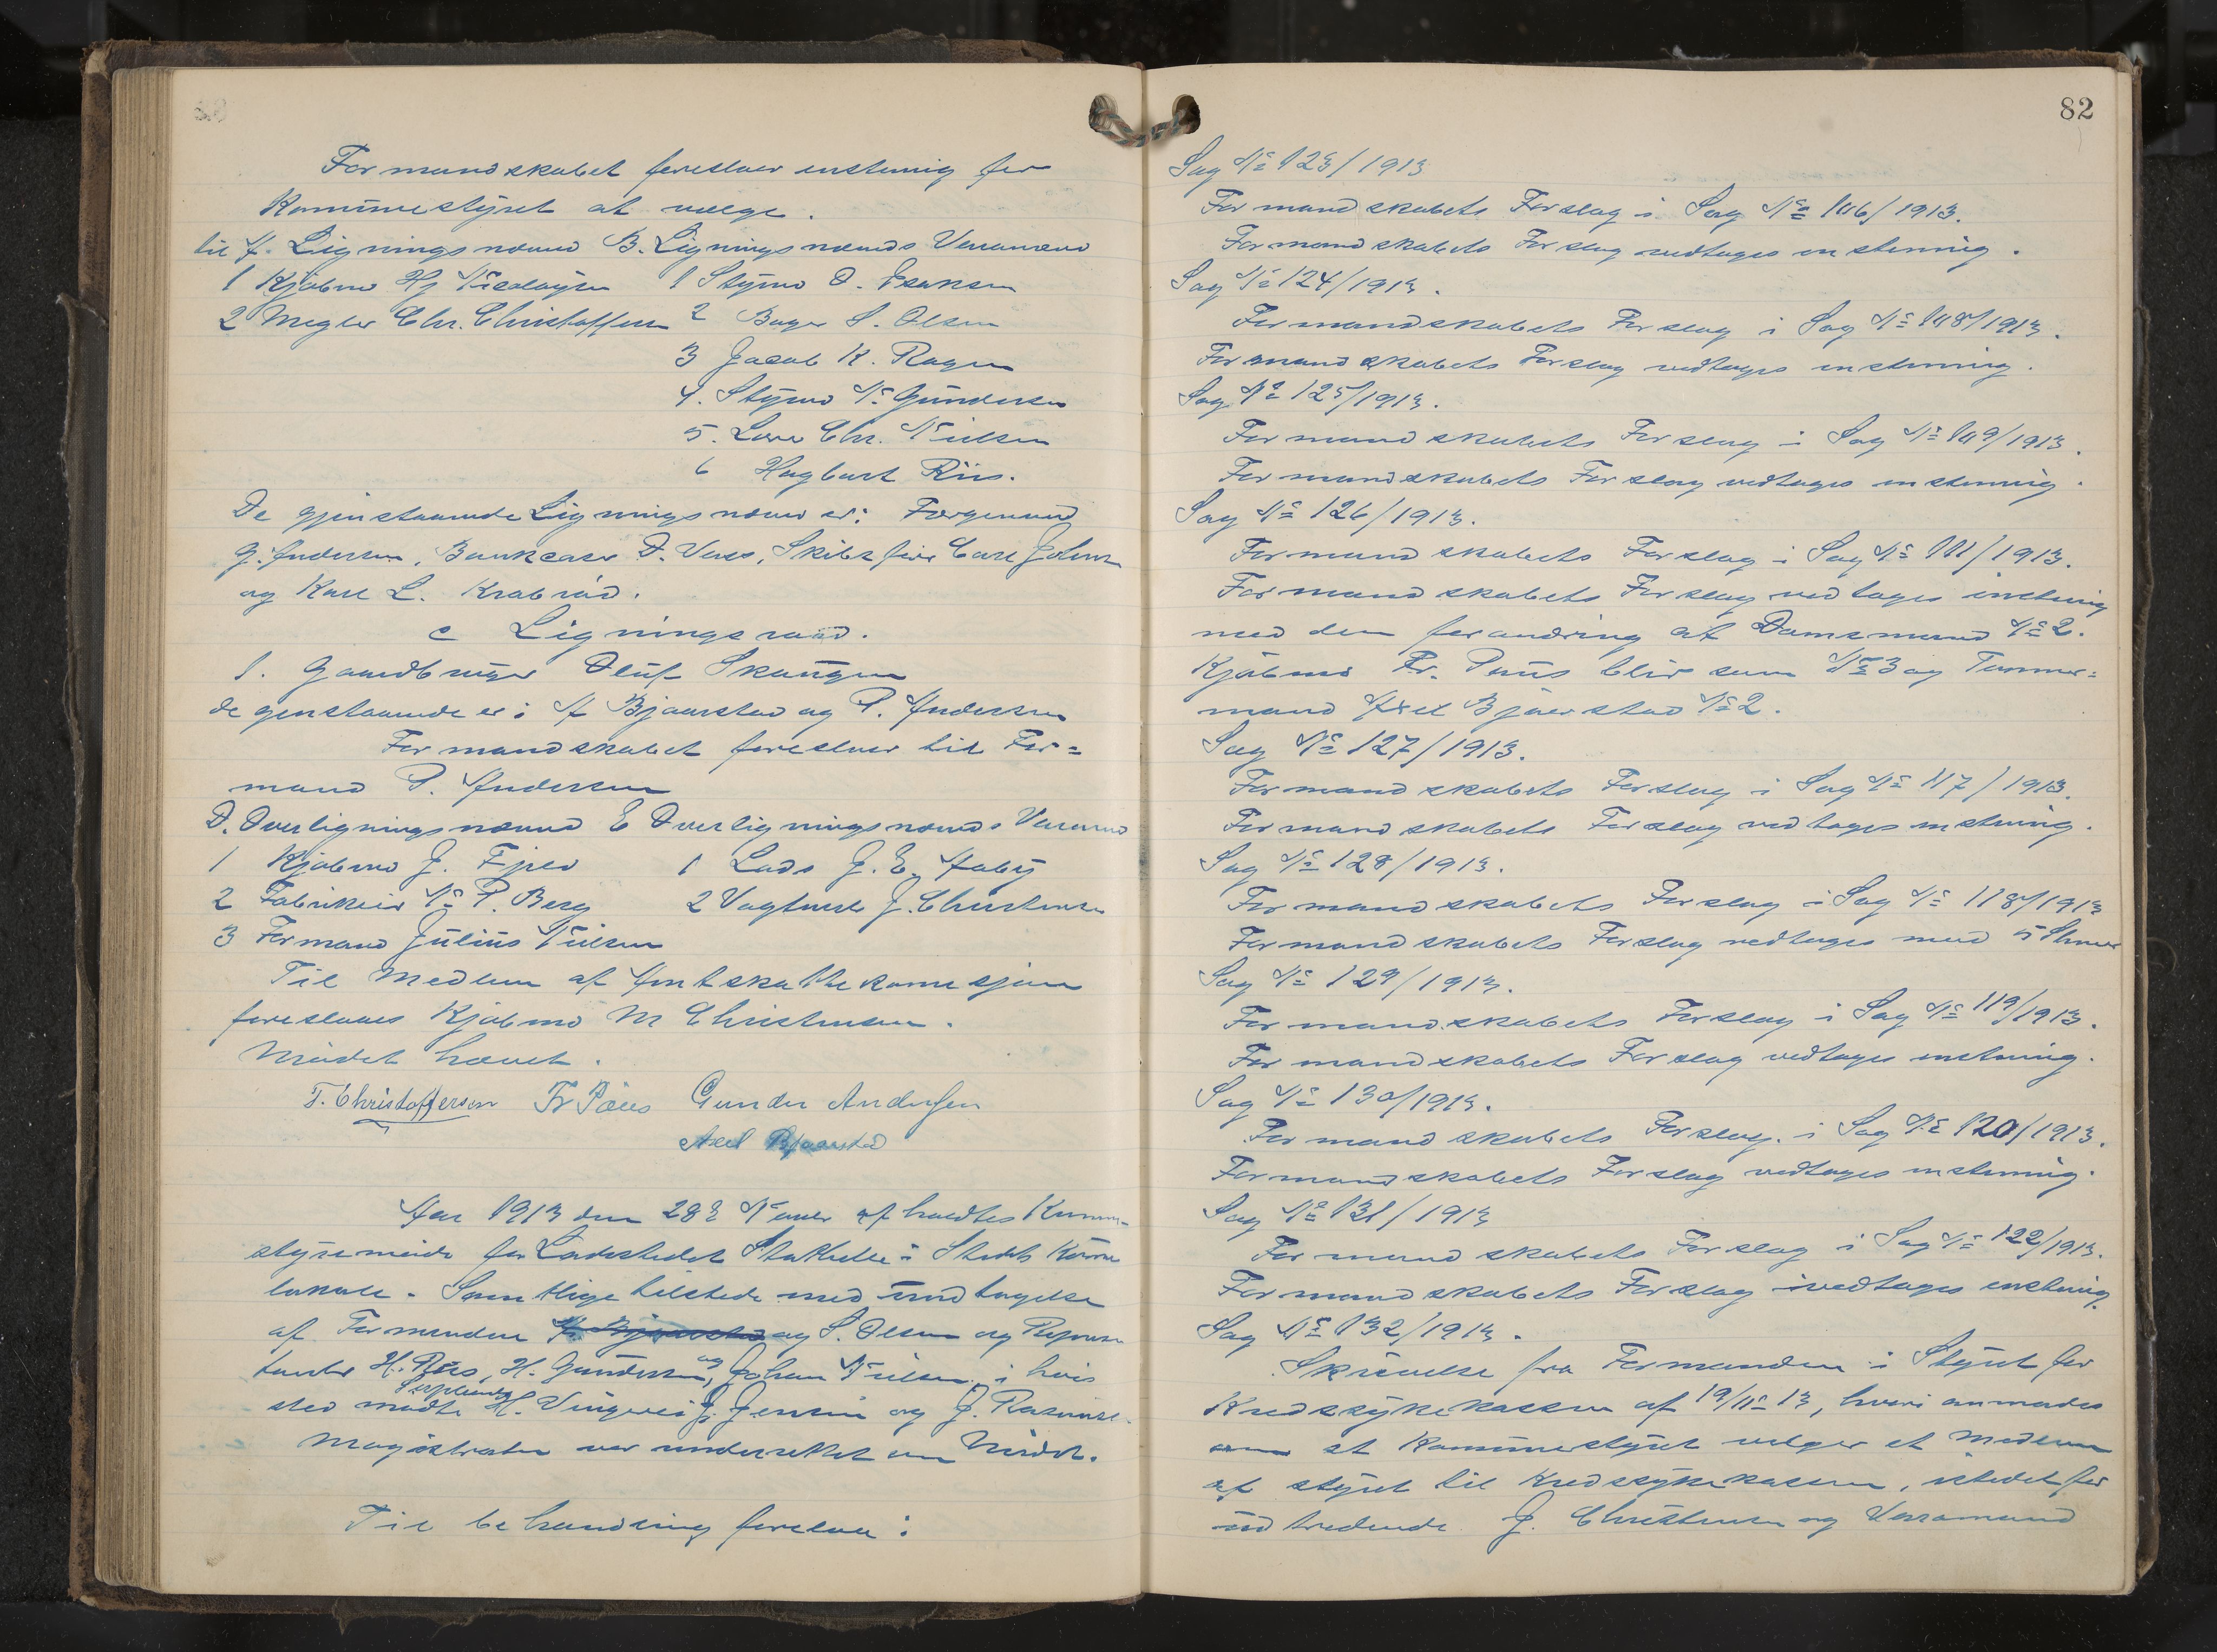 Formandskabet foreslaar enstemig for
Kommunestyret at vælge.
til A. Ligningsnævnd B. Ligningsnævnds Varamænd
1 Kjøbmd Hj Nicolaysen 1 Styrmd O. Isaksen
2 Megler Chr. Christoffersen 2 Bager S. Olsen
3 Jacob K. Ragen
4. Styrmd N. Gundersen
5. Chr. Nielsen
6 Hagbart Riis.
De gjenstaaende Ligningsnævnd er: Færgemand
G. Andersen, Bankcaser D. Vass, Skibsfører Carl Johnsen
og Karl L. Krabrød.
c Ligningsraad.
1. Gaardbruger Oluf Skaugen
de genstaaende er: A Bjaarstad og P. Andersen
Formandskabet foreslaar til For=
mand P. Andersen
D. Overligningsnævnd E Overligningsnævnds Varamd
1 Kjøbmd J. Fjeld 1 Lods J. E. Aaby
2 Fabrikeier N. P. Berg 2 Vagtmester J. Christensen
3 Formand Julius Nielsen
Til Medlem af Amtskattekomesjonen
foreslaaes Kjøbmd M Christensen.
Mødet hævet.
T. Christoffersen Fr Paus Gunder Andersen
Axel Bjaarstad
Aar 1913 den 28de Novbr afholdtes Kommune-
styremøde for Ladestedet Stathelle i Stedets Kommune
lokale. Samtlige tilstede med undtagelse
af Formændene A. Bjaarstad og S. Olsen og Repræsen
tanter H. Riis, H. Gundersen, og Johan Nielsen i hvis
sted mødte Suppleanter H. Vingerei J. Jensen og J. Rasmussen.
Magistraten var underrettet om Mødet.
Til behandling forelaa:
82
Sag No 123/1913
Formandskabets Forslag i Sag No 106/1913.
Formandskabets Forslag vedtages enstemig.
Sag No 124/1913.
Formandskabets Forslag i Sag No 108/1913.
Formandskabets Forslag vedtages enstemig.
Sag No 125/1913.
Formandskabets Forslag i Sag No 109/1913.
Formandskabets Forslag vedtages enstemig.
Sag No 126/1913.
Formandskabets Forslag i Sag No 111/1913.
Formandskabets Forslag vedtages enstemig
med den forandring at Domsmand No 2.
Kjøbmd Fr. Paus blir som No 3 og Tømmer=
mand Axel Bjaarstad No 2.
Sag No 127/1913.
Formandskabets Forslag i Sag No 117/1913.
Formandskabets Forslag vedtages enstemig.
Sag No 128/1913.
Formandskabets Forslag i Sag No 118/1913
Formandskabets Forslag vedtages med 5 Stemmer
Sag No 129/1913.
Formandskabets Forslag i Sag No 119/1913.
Formandskabets Forslag vedtages enstemig.
Sag No 130/1913.
Formandskabets Forslag. i Sag No 120/1913.
Formandskabets Forslag vedtages enstemig.
Sag No 131/1913
Formandskabets Forslag i Sag No 122/1913.
Formandskabets Forslag vedtages enstemig.
Sag No 132/1913.
Skrivelse fra Formanden i Styret for
Kredssykekassen af 19/11-13, hvori anmodes
om at Kommunestyret velger et Medlem
af styret til Kredssykekassen, istedetfor
udtredende J. Christensen og Varamand